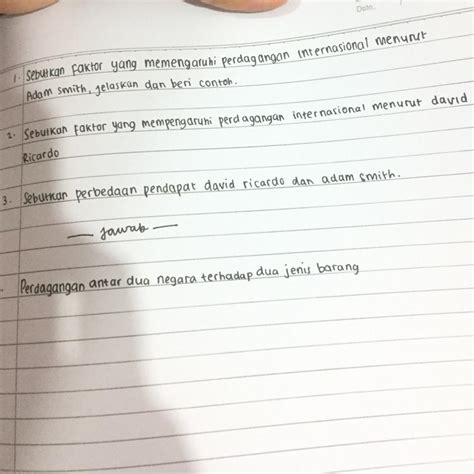 Date.
1. Sebutkan faktor yang memengaruhi perdagangan internasional menurut
Adam smith, jelaskan dan beri contoh.
2. Sebutkan faktor yang mempengaruhi perdagangan internasional menurut david
Ricardo
3. Sebutkan perbedaan pendapat david ricardo dan adam smith.
— Jawab —
Perdagangan antar dua negara terhadap dua jenis barang